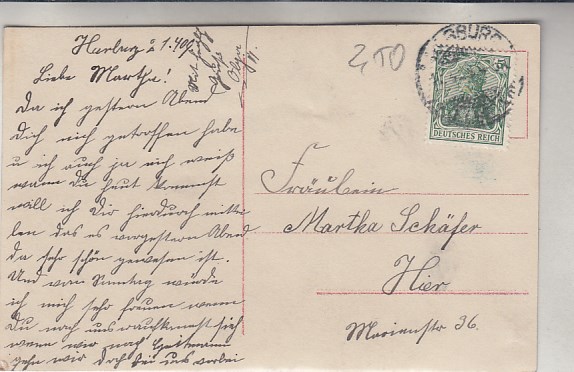 Harburg d 1.4.09
Liebe Martha!
Da ich gestern Abend
Dich nich getroffen habe
u ich auch ja nich weiß
wann Du heut kommst
will ich Dir hierdurch mittei
len das es vorgestern Abend
da sehr schön gewesen ist.
Und von Sonntag würde
ich mich sehr freuen wenn
Du nach uns
wenn wir nach
gehn wir doch bei uns vorbei
Olga
2,50
SBURG
5
DEUTSCHES REICH
Fräulein
Martha Schäfer
Hier
Marienstr 36.